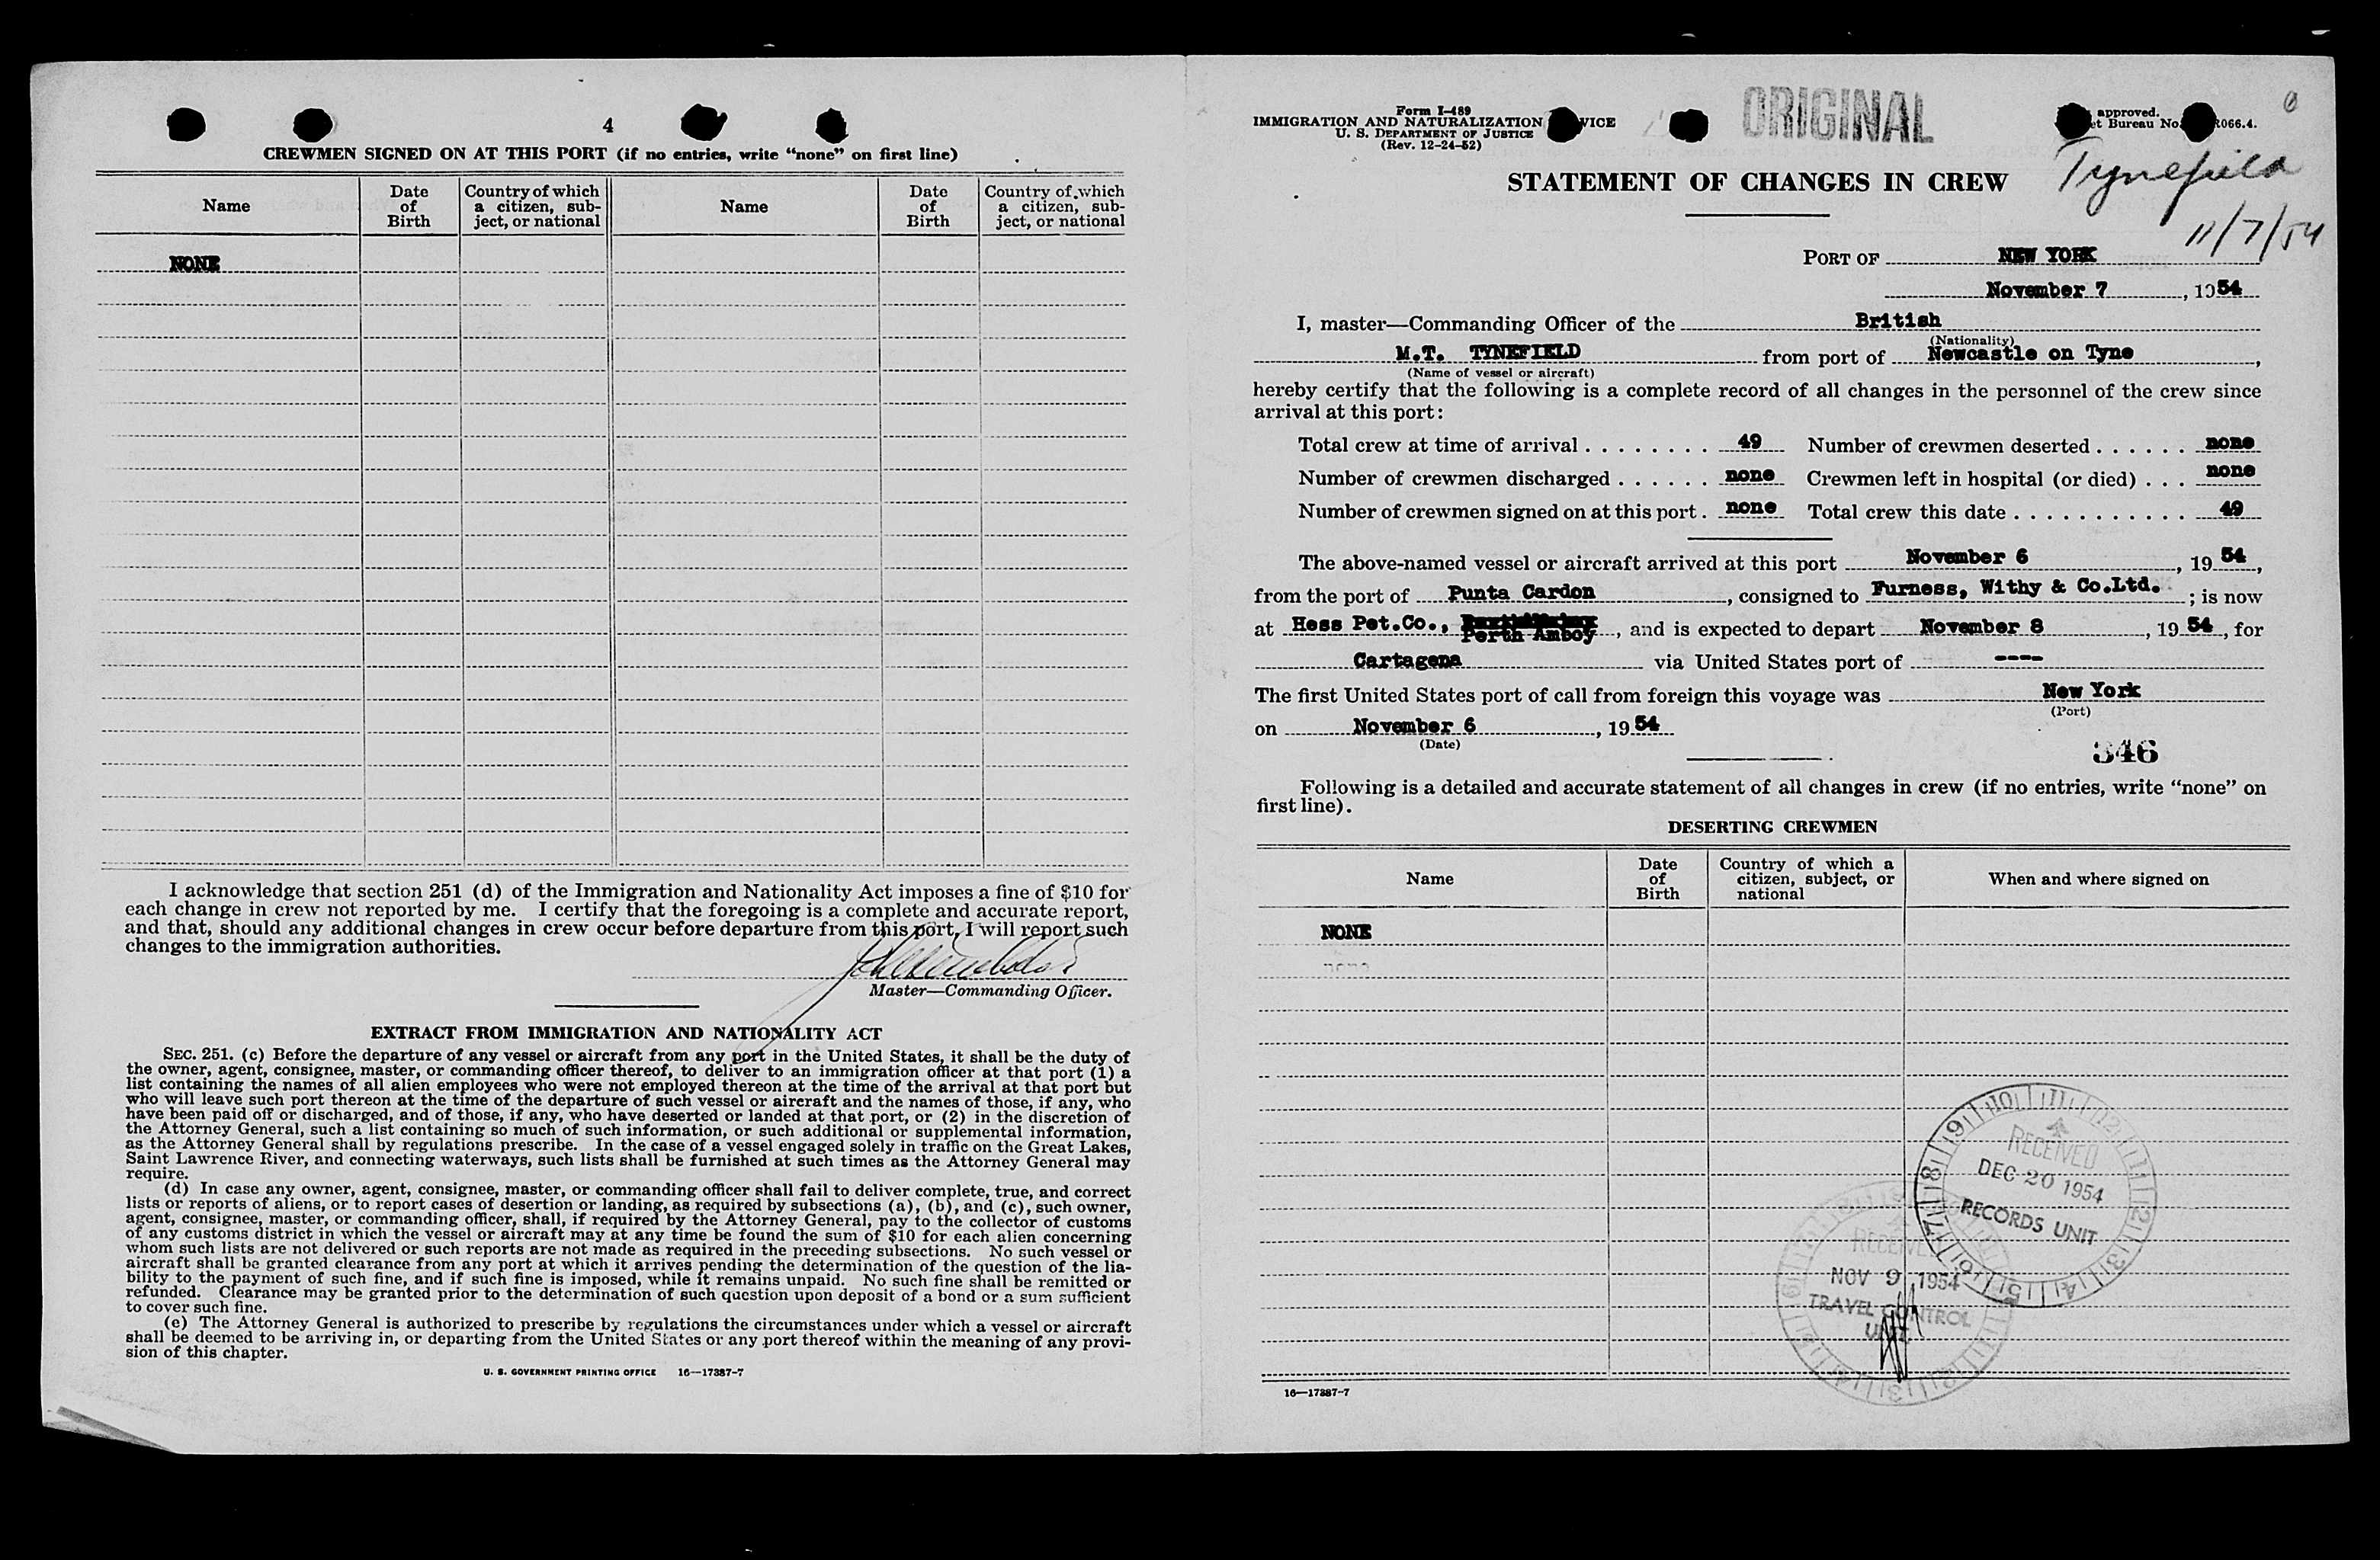 4
CREWMEN SIGNED ON AT THIS PORT (if no entries, write “none” on first line)
Name
Date of Birth
Country of which a citizen, sub-ject, or national
Name
Date of Birth
Country of which a citizen, sub-ject, or national
NONE
I acknowledge that section 251 (d) of the Immigration and Nationality Act imposes a fine of $10 for
each change in crew not reported by me. I certify that the foregoing is a complete and accurate report,
and that, should any additional changes in crew occur before departure from this port, I will report such
changes to the immigration authorities.
Master—Commanding Officer.
EXTRACT FROM IMMIGRATION AND NATIONALITY ACT
SEC. 251. (c) Before the departure of any vessel or aircraft from any port in the United States, it shall be the duty of
the owner, agent, consignee, master, or commanding officer thereof, to deliver to an immigration officer at that port (1) a
list containing the names of all alien employees who were not employed thereon at the time of the arrival at that port but
who will leave such port thereon at the time of the departure of such vessel or aircraft and the names of those, if any, who
have been paid off or discharged, and of those, if any, who have deserted or landed at that port, or (2) in the discretion of
the Attorney General, such a list containing so much of such information, or such additional or supplemental information,
as the Attorney General shall by regulations prescribe. In the case of a vessel engaged solely in traffic on the Great Lakes,
Saint Lawrence River, and connecting waterways, such lists shall be furnished at such times as the Attorney General may
require.
(d) In case any owner, agent, consignee, master, or commanding officer shall fail to deliver complete, true, and correct
lists or reports of aliens, or to report cases of desertion or landing, as required by subsections (a), (b), and (c), such owner,
agent, consignee, master, or commanding officer, shall, if required by the Attorney General, pay to the collector of customs
of any customs district in which the vessel or aircraft may at any time be found the sum of $10 for each alien concerning
whom such lists are not delivered or such reports are not made as required in the preceding subsections. No such vessel or
aircraft shall be granted clearance from any port at which it arrives pending the determination of the question of the lia-
bility to the payment of such fine, and if such fine is imposed, while it remains unpaid. No such fine shall be remitted or
refunded. Clearance may be granted prior to the determination of such question upon deposit of a bond or a sum sufficient
to cover such fine.
(e) The Attorney General is authorized to prescribe by regulations the circumstances under which a vessel or aircraft
shall be deemed to be arriving in, or departing from the United States or any port thereof within the meaning of any provi-
sion of this chapter.
U. S. GOVERNMENT PRINTING OFFICE 16—17387-7
Form I-489
IMMIGRATION AND NATURALIZATION VICE
U. S. DEPARTMENT OF JUSTICE
(Rev. 12-24-52)
ORIGINAL
approved.
Bureau No. R066.4.
Tynefield
11/7/54
STATEMENT OF CHANGES IN CREW
PORT OF NEW YORK
November 7, 1954
I, master—Commanding Officer of the British
(Nationality)
M.T. TYNEFIELD from port of Newcastle on Tyne,
(Name of vessel or aircraft)
hereby certify that the following is a complete record of all changes in the personnel of the crew since
arrival at this port:
Total crew at time of arrival 49 Number of crewmen deserted none
Number of crewmen discharged none Crewmen left in hospital (or died) none
Number of crewmen signed on at this port none Total crew this date 49
The above-named vessel or aircraft arrived at this port November 6, 19 54,
from the port of Punta Cardon, consigned to Furness, Withy & Co.Ltd.; is now
at Hess Pet.Co., Perth Amboy, and is expected to depart November 8, 19 54, for
Cartagena via United States port of ----
The first United States port of call from foreign this voyage was New York
(Port)
on November 6, 19 54
(Date)
346
Following is a detailed and accurate statement of all changes in crew (if no entries, write “none” on
first line).
DESERTING CREWMEN
Name
Date of Birth
Country of which a citizen, subject, or national
When and where signed on
NONE
RECEIVED
DEC 20 1954
RECORDS UNIT
RECEIVED
NOV 9 1954
TRAVEL CONTROL
UNIT
16—17387-7